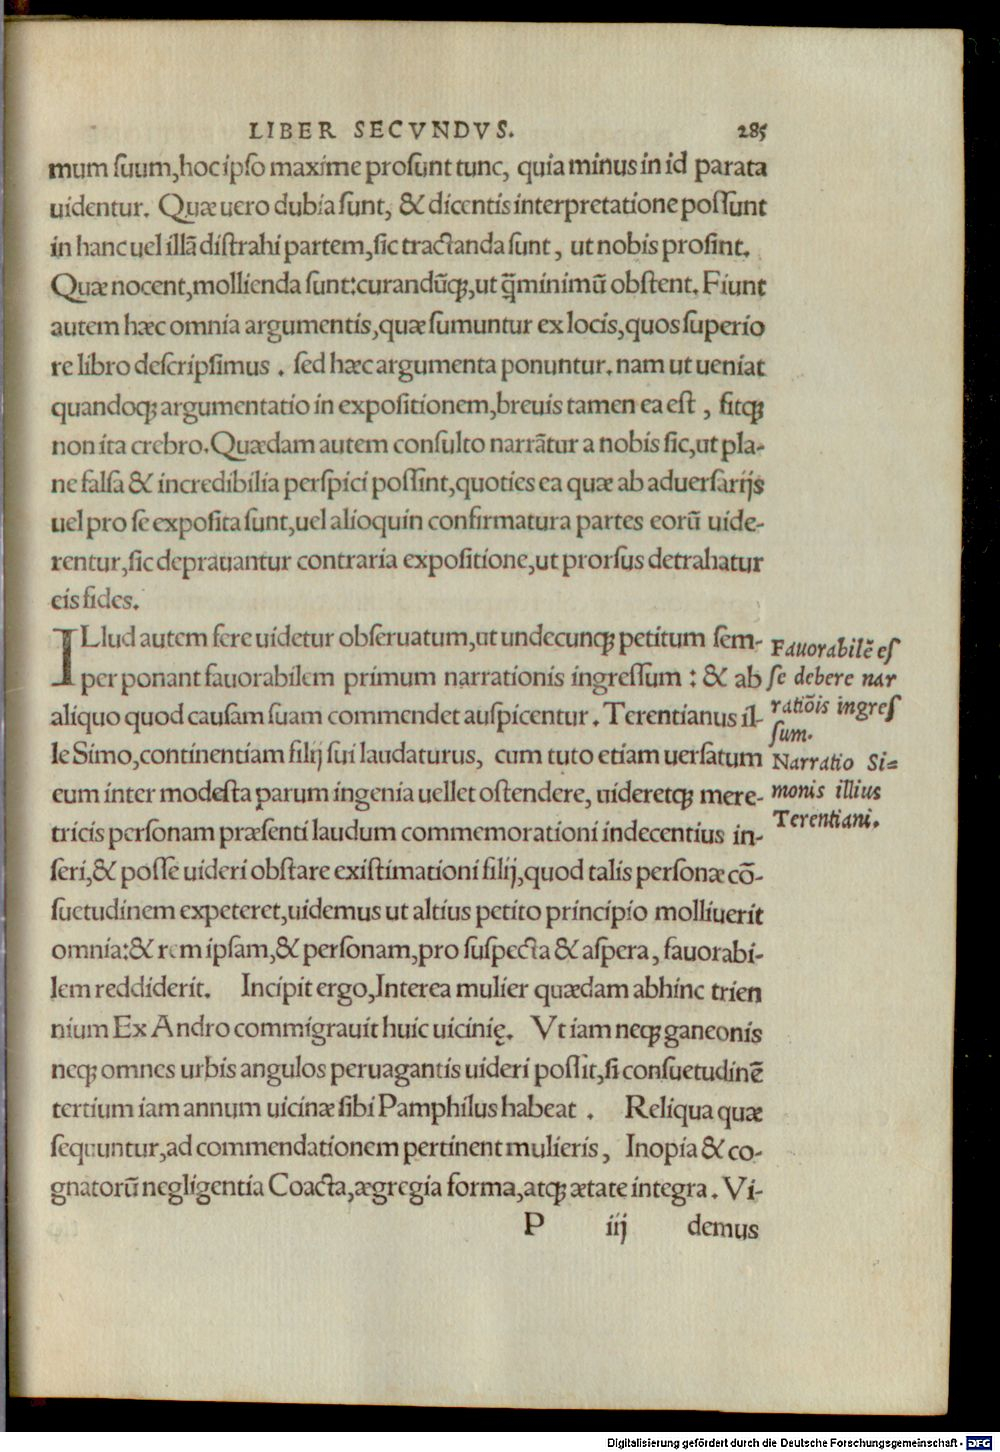 LIBER SECVNDVS. 285
mum ſuum,hoc ipſo maxime proſunt tunc, quia minus in id parata
uidentur. Quæ uero dubia ſunt, & dicentis interpretatione poſſunt
in hanc uel illã diſtrahi partem,ſic tractanda ſunt, ut nobis proſint.
Quæ nocent,mollienda ſunt:curandũq;,ut q̃minimũ obſtent. Fiunt
autem hæc omnia argumentis,quæ ſumuntur ex locis,quos ſuperio
re libro deſcripſimus . ſed hæc argumenta ponuntur. nam ut ueniat
quandoq; argumentatio in expoſitionem,breuis tamen ea eſt , fitq;
non ita crebro. Quædam autem conſulto narrãtur a nobis ſic,ut pla-
ne falſa & incredibilia perſpici poſſint,quoties ea quæ ab aduerſarijs
uel pro ſe expoſita ſunt,uel alioquin confirmatura partes eorũ uide-
rentur,ſic deprauantur contraria expoſitione,ut prorſus detrahatur
eis fides.
ILlud autem fere uidetur obſeruatum,ut undecunq; petitum ſem-
per ponant fauorabilem primum narrationis ingreſſum : & ab
aliquo quod cauſam ſuam commendet auſpicentur. Terentianus il-
le Simo,continentiam filij ſui laudaturus, cum tuto etiam uerſatum
eum inter modeſta parum ingenia uellet oſtendere, uideretq; mere-
tricis perſonam præſenti laudum commemorationi indecentius in-
ſeri,& poſſe uideri obſtare exiſtimationi filij,quod talis perſonæ cõ-
ſuetudinem expeteret,uidemus ut altius petito principio molliuerit
omnia:& rem ipſam,& perſonam,pro ſuſpecta & aſpera, fauorabi-
lem reddiderit. Incipit ergo,Interea mulier quædam abhinc trien
nium Ex Andro commigrauit huic uicinię. Vt iam neq; ganeonis
neq; omnes urbis angulos peruagantis uideri poſſit,ſi conſuetudinẽ
tertium iam annum uicinæ ſibi Pamphilus habeat . Reliqua quæ
ſequuntur,ad commendationem pertinent mulieris, Inopia & co-
gnatorũ negligentia Coacta,ægregia forma,atq; ætate integra. Vi-
P iij demus
Fauorabilẽ eſ
ſe debere nar
ratiõis ingreſ
ſum.
Narratio Si=
monis illius
Terentiani.
Digitalisierung gefördert durch die Deutsche Forschungsgemeinschaft - DFG